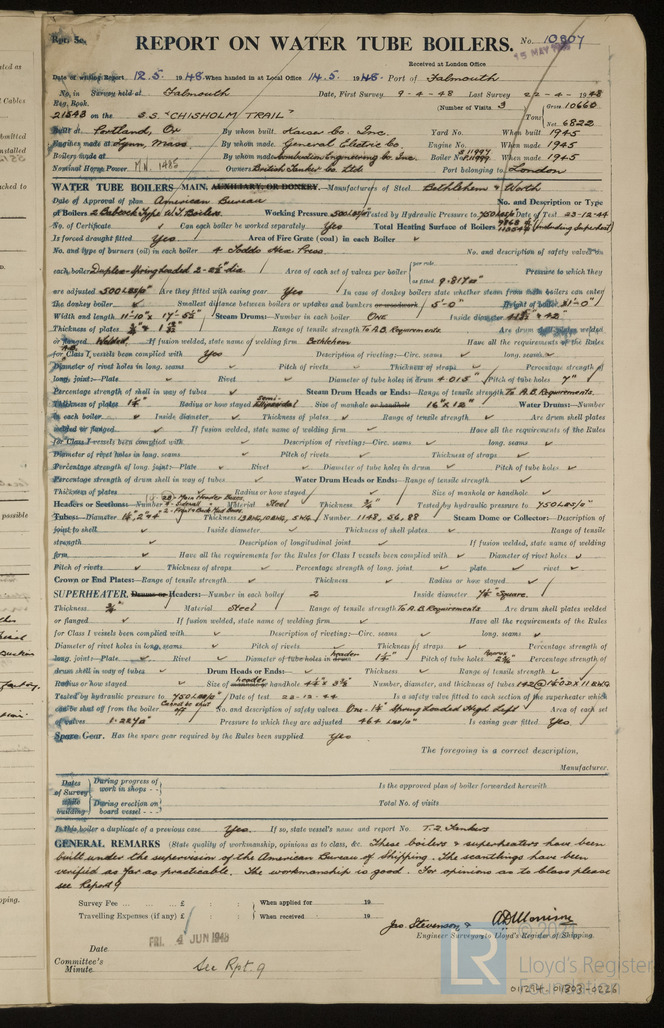 Rpt. 5c.
REPORT ON WATER TUBE BOILERS. No. 10807
15 MAY 1948
Received at London Office
Date of writing Report 12.5. 1948 When handed in at Local Office 14.5. 1948 Port of Falmouth
No. in Survey held at Falmouth Date, First Survey 9-4-48 Last Survey 22-4-1948
Reg. Book. (Number of Visits 3) Gross 10660
21543 on the S.S. "CHISHOLM TRAIL" Tons Net 6822
Built at Portland, Ore By whom built Kaiser Co. Inc. Yard No. When built 1945
Engines made at Lynn, Mass. By whom made General Electric Co. Engine No. When made 1945
Boilers made at By whom made Combustion Engineering Co. Inc. Boiler No. When made 1945
Nominal Horse Power MN. 1485 Owners British Tanker Co. Ltd Port belonging to London
WATER TUBE BOILERS—MAIN, AUXILIARY, OR DONKEY.—Manufacturers of Steel Bethlehem & Worth
Date of Approval of plan American Bureau No. and Description or Type
of Boilers 2 Babcock Type W.T. Boilers Working Pressure 500 LBS/□" Tested by Hydraulic Pressure to 750 LBS/□" Date of Test 23-12-44
No. of Certificate Can each boiler be worked separately Yes Total Heating Surface of Boilers (including Superheat)
Is forced draught fitted Yes Area of Fire Grate (coal) in each Boiler
No. and type of burners (oil) in each boiler 4 Todds Hex Press. No. and description of safety valves on
each boiler Duplex-Spring loaded 2-2½" dia Area of each set of valves per boiler per rule as fitted 9.817□" Pressure to which they
are adjusted 500 LBS/□" Are they fitted with easing gear Yes In case of donkey boilers state whether steam from main boilers can enter
the donkey boiler Smallest distance between boilers or uptakes and bunkers or woodwork 5'-0" Height of boiler 31'-0"
Width and length 11'-10" x 17'-5½" Steam Drums:—Number in each boiler One Inside diameter
Thickness of plates Range of tensile strength To A.B. Requirements Are drum shell plates welded
or flanged Welded If fusion welded, state name of welding firm Bethlehem Have all the requirements of the Rules
for Class I vessels been complied with Yes Description of riveting:—Circ. seams long. seams
Diameter of rivet holes in long. seams Pitch of rivets Thickness of straps Percentage strength of
long. joint:—Plate Rivet Diameter of tube holes in drum 4.015" Pitch of tube holes 7"
Percentage strength of shell in way of tubes Steam Drum Heads or Ends:—Range of tensile strength To A.B. Requirements
Thickness of plates Radius or how stayed semi-Ellipsoidal Size of manhole or handhole 16"x12" Water Drums:—Number
in each boiler Inside diameter Thickness of plates Range of tensile strength Are drum shell plates
welded or flanged If fusion welded, state name of welding firm Have all the requirements of the Rules
for Class I vessels been complied with Description of riveting:—Circ. seams long. seams
Diameter of rivet holes in long. seams Pitch of rivets Thickness of straps
Percentage strength of long. joint:—Plate Rivet Diameter of tube holes in drum Pitch of tube holes
Percentage strength of drum shell in way of tubes Water Drum Heads or Ends:—Range of tensile strength
Thickness of plates Radius or how stayed Size of manhole or handhole
Headers or Sections:—Number Material Steel Thickness Tested by hydraulic pressure to 750 LBS/□"
Tubes:—Diameter Thickness Number 1148, 56, 88 Steam Dome or Collector:—Description of
joint to shell Inside diameter Thickness of shell plates Range of tensile
strength Description of longitudinal joint If fusion welded, state name of welding
firm Have all the requirements for the Rules for Class I vessels been complied with Diameter of rivet holes
Pitch of rivets Thickness of straps Percentage strength of long. joint plate rivet
Crown or End Plates:—Range of tensile strength Thickness Radius or how stayed
SUPERHEATER. Drums or Headers:—Number in each boiler 2 Inside diameter Square.
Thickness Material Steel Range of tensile strength To A.B. Requirements Are drum shell plates welded
or flanged If fusion welded, state name of welding firm Have all the requirements of the Rules
for Class I vessels been complied with Description of riveting:—Circ. seams long. seams
Diameter of rivet holes in long. seams Pitch of rivets Thickness of straps Percentage strength of
long. joint:—Plate Rivet Diameter of tube holes in drum header Pitch of tube holes Percentage strength of
drum shell in way of tubes Drum Heads or Ends:—Thickness Range of tensile strength
Radius or how stayed Size of header handhole Number, diameter, and thickness of tubes
Tested by hydraulic pressure to 750 LBS/□" Date of test 22-12-44 Is a safety valve fitted to each section of the superheater which
can be shut off from the boiler Cannot be shut off No. and description of safety valves One-1¼" Spring loaded High Lift Area of each set
of valves 1.227□" Pressure to which they are adjusted 464 LBS/□" Is easing gear fitted Yes
Spare Gear. Has the spare gear required by the Rules been supplied Yes
The foregoing is a correct description,
Manufacturer.
Dates of Survey while building
During progress of work in shops - -
During erection on board vessel - - -
Is the approved plan of boiler forwarded herewith
Total No. of visits
Is this boiler a duplicate of a previous case Yes. If so, state vessel's name and report No. T.2. Tankers
GENERAL REMARKS (State quality of workmanship, opinions as to class, &c. These boilers & superheaters have been
built under the supervision of the American Bureau of Shipping. The scantlings have been
verified as far as practicable. The workmanship is good. For opinions as to class please
see Report 9
Survey Fee ... ... ... £ : : When applied for 19
Travelling Expenses (if any) £ : : When received 19
Jno. Stevenson &
Engineer Surveyor to Lloyd's Register of Shipping.
Date FRI. 4 JUN 1948
Committee's
Minute. See Rpt. 9
© 2021
LR
Lloyd's Register
Foundation
011294-011303-0226